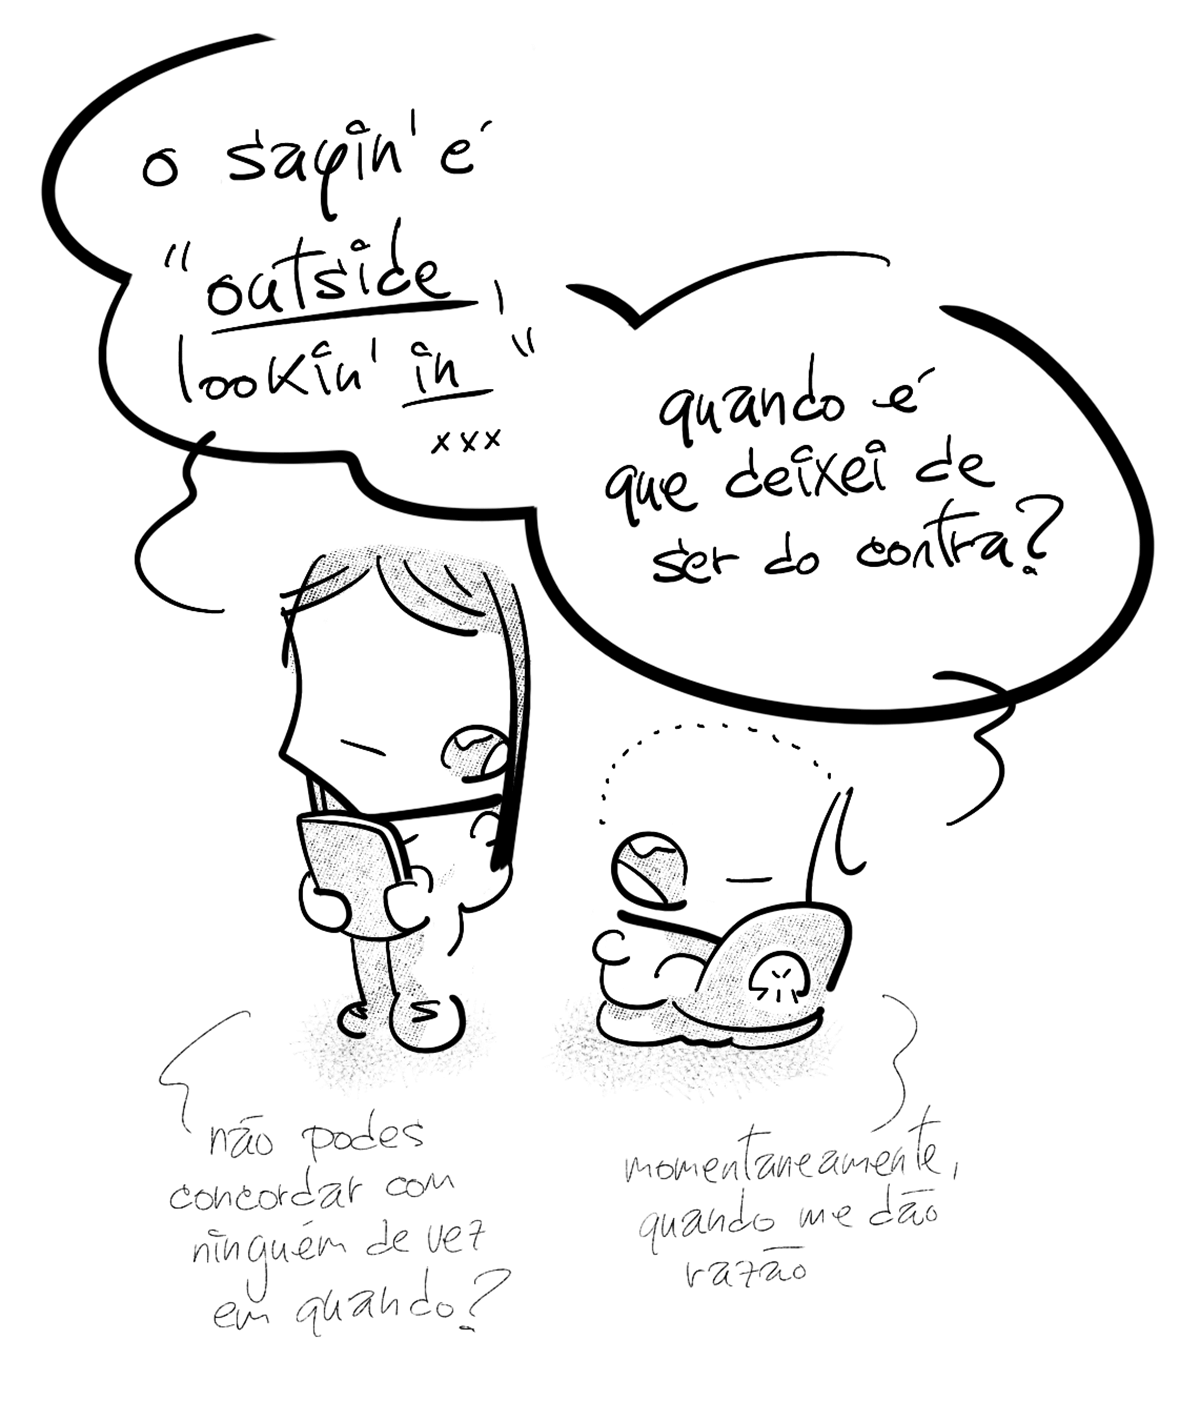 o sayin' é
"outside,
lookin' in"
xxx
quando é
que deixei de
ser do contra?
não podes
concordar com
ninguém de vez
em quando?
momentaneamente,
quando me dão
razão